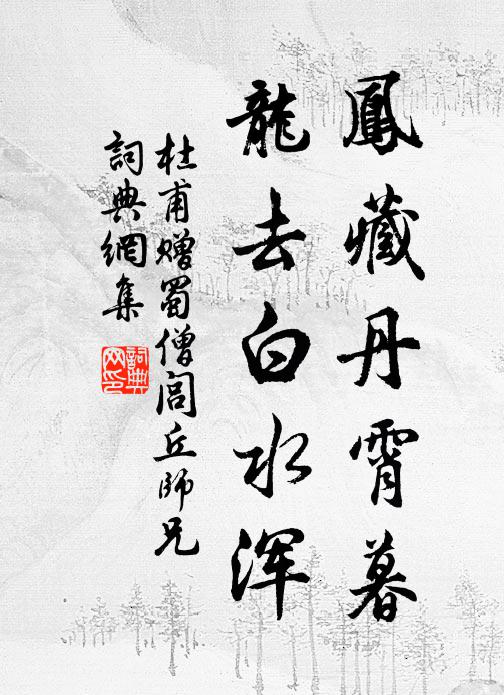 鳳藏丹霄暮
龍去白水浑
杜甫贈蜀僧閭丘師兄
詞典網集
詞典
网印